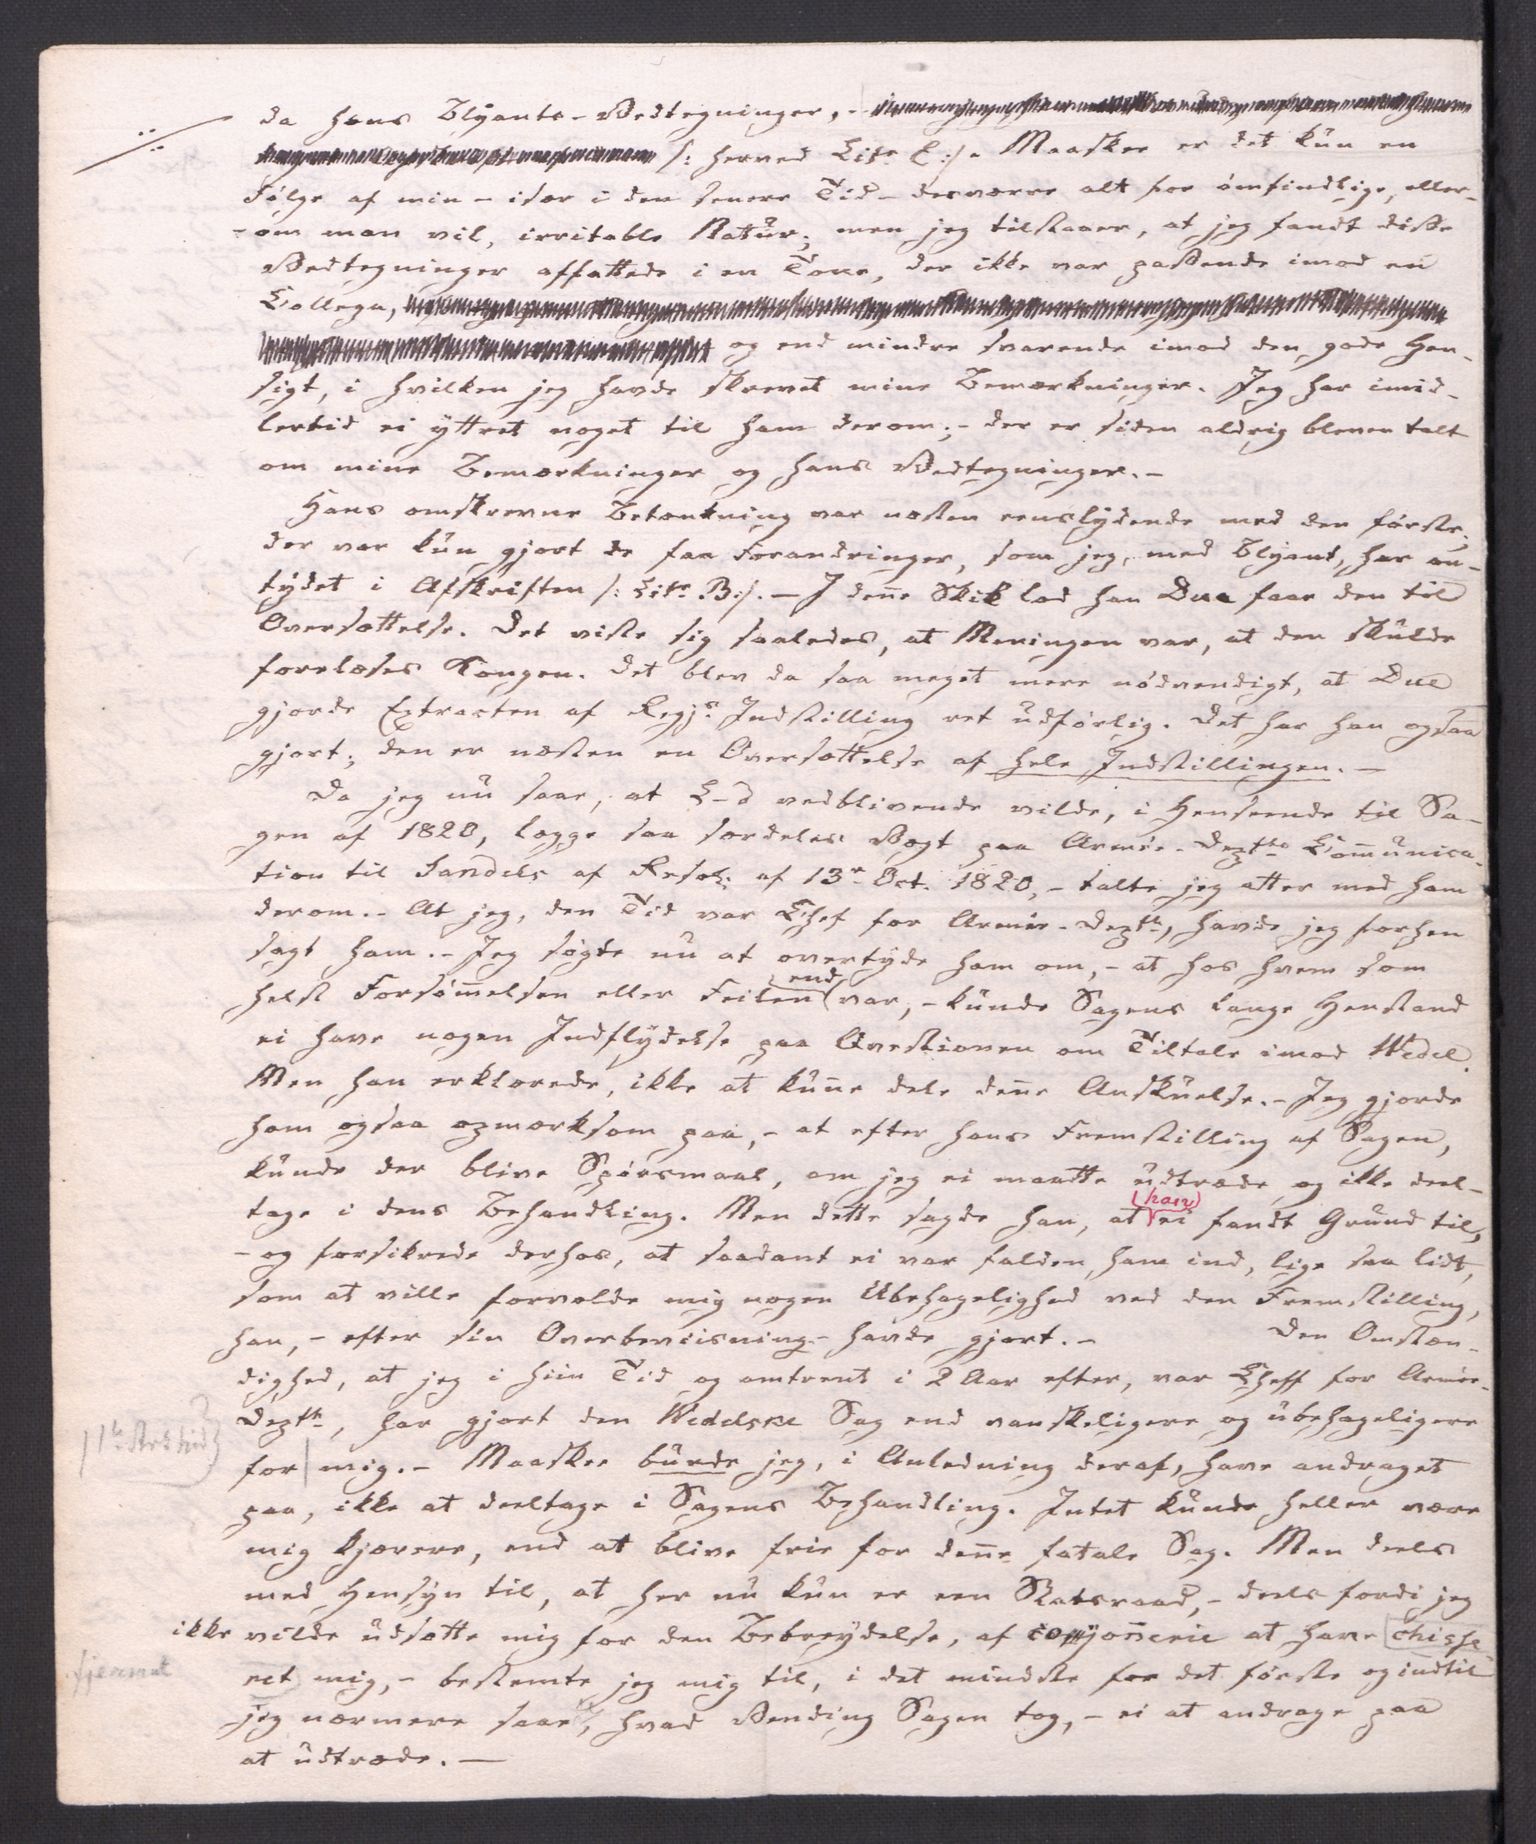 da hans Blyants-Vedtegninger, -
/: herved Litr C :/. Maaskee er det kun en
Følge af min - især i den senere Tid - desværre alt for ømfindtlige, eller -
- om man vil, irritable Natur; men jeg tilstaaer, at jeg fandt disse
Vedtegninger affattede i en Tone, der ikke var passende imod en
Collega,
og end mindre svarende imod den gode Hen-
sigt, i hvilken jeg havde skrevet mine Bemærkninger. Jeg har imid-
lertid ei yttret noget til ham derom; - der er siden aldrig bleven talt
om mine Bemærkninger og hans Vedtegninger. -
Hans omskrevne Betænkning var næsten eenslydende med den første;
der var kun gjort de faa Forandringer, som jeg, med Blyant, har an-
tydet i Afskriften /: Litr. B :/. - I denne Skik lod han Due faae den til
Oversættelse. Det viste sig saaledes, at Meningen var, at den skulde
forelæses Kongen. Det blev da saa meget mere nødvendigt, at Due
gjorde Extracten af Regjs Indstilling ret udførlig. Det har han ogsaa
gjort; den er næsten en Oversættelse af hele Indstillingen. -
Da jeg nu saae, at L-d vedblivende vilde, i Henseende til Sa-
gen af 1820, lægge saa særdeles Vægt paa Armée-Depts Communica-
tion til Sandels af Resol: af 13de Oct. 1820, - talte jeg atter med ham
derom. - At jeg, den Tid var Chef for Armée-Deptt, havde jeg forhen
sagt ham. - Jeg søgte nu at overtyde ham om, - at hos hvem som
helst Forsømmelsen eller Feilen end var, - kunde Sagens lange Henstand
ei have nogen Indflydelse paa Qvestionen om Tiltale imod Wedel.
Men han erklærede, ikke at kunne dele denne Anskuelse. - Jeg gjorde
ham ogsaa opmærksom paa, - at efter hans Fremstilling af Sagen,
kunde der blive Spørsmaal, om jeg ei maatte udtræde og ikke deel-
tage i dens Behandling. Men dette sagde han, at han ei fandt Grund til,
- og forsikrede derhos, at saadant ei var falden ham ind, lige saa lidt,
som at ville forvolde mig nogen Ubehagelighed ved den Fremstilling,
han, - efter sin Overbeviisning - havde gjort. - Den Omstæn-
dighed, at jeg i hiin Tid og omtrent i 2 Aar efter, var Cheff for Armée-
Deptt, har gjort den Wedelske Sag end vanskeligere og ubehageligere
for mig. - Maaskee burde jeg, i Anledning deraf, have andraget
paa, ikke at deeltage i Sagens Behandling. Intet kunde heller være
mig kjærere, end at blive frie for denne fatale Sag. Men deels
med Hensyn til, at her nu kun er een Statsraad, - deels fordi jeg
ikke vilde udsætte mig for den Bebreydelse, af at have
ret mig, - bestemte jeg mig til, i det mindste for det første og indtil
fjernet
jeg nærmere saae, hvad Vending Sagen tog, - ei at andrage paa
at udtræde. -